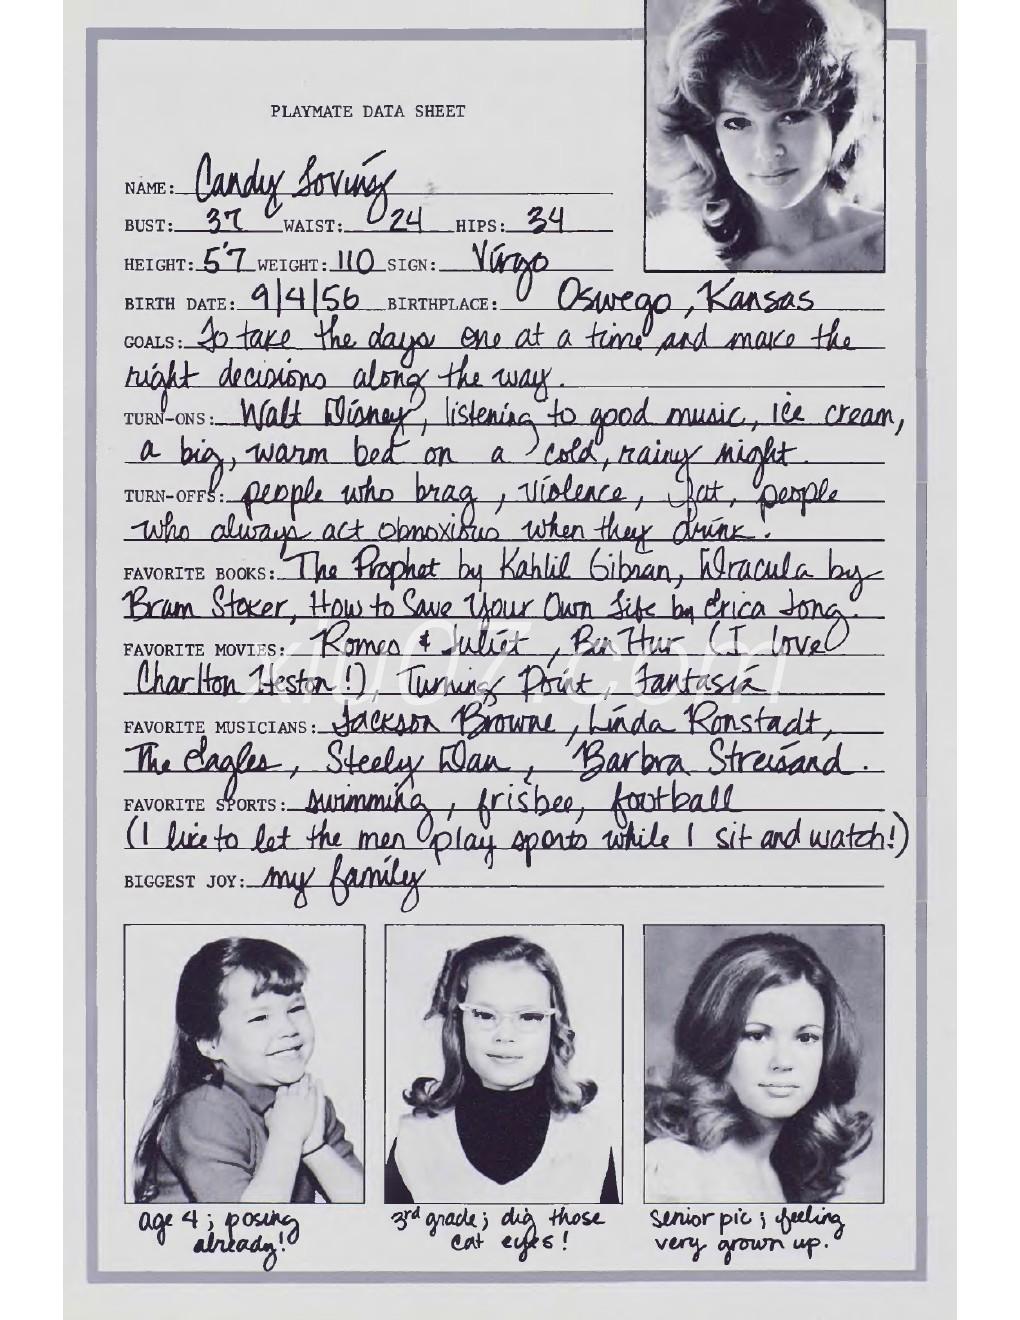 PLAYMATE DATA SHEET
NAME: Candy Loving
BUST: 37 WAIST: 24 HIPS: 34
HEIGHT: 5'7 WEIGHT: 110 SIGN: Virgo
BIRTH DATE: 9/4/56 BIRTHPLACE: Oswego, Kansas
GOALS: To take the days one at a time and make the
right decisions along the way.
TURN-ONS: Walt Disney, listening to good music, ice cream,
a big, warm bed on a cold, rainy night.
TURN-OFFS: people who brag, violence, fat, people
who always act obnoxious when they drink!
FAVORITE BOOKS: The Prophet by Kahlil Gibran, Dracula by
Bram Stoker, How to Save Your Own Life by Erica Jong.
FAVORITE MOVIES: Romeo & Juliet, Ben Hur (I love
Charlton Heston!), Turning Point, Fantasia
FAVORITE MUSICIANS: Jackson Browne, Linda Ronstadt,
The Eagles, Steely Dan, Barbra Streisand.
FAVORITE SPORTS: swimming, frisbee, football
(I like to let the men play sports while I sit and watch!)
BIGGEST JOY: my family
age 4; posing
already!
3rd grade; dig those
cat eyes!
Senior pic; feeling
very grown up.